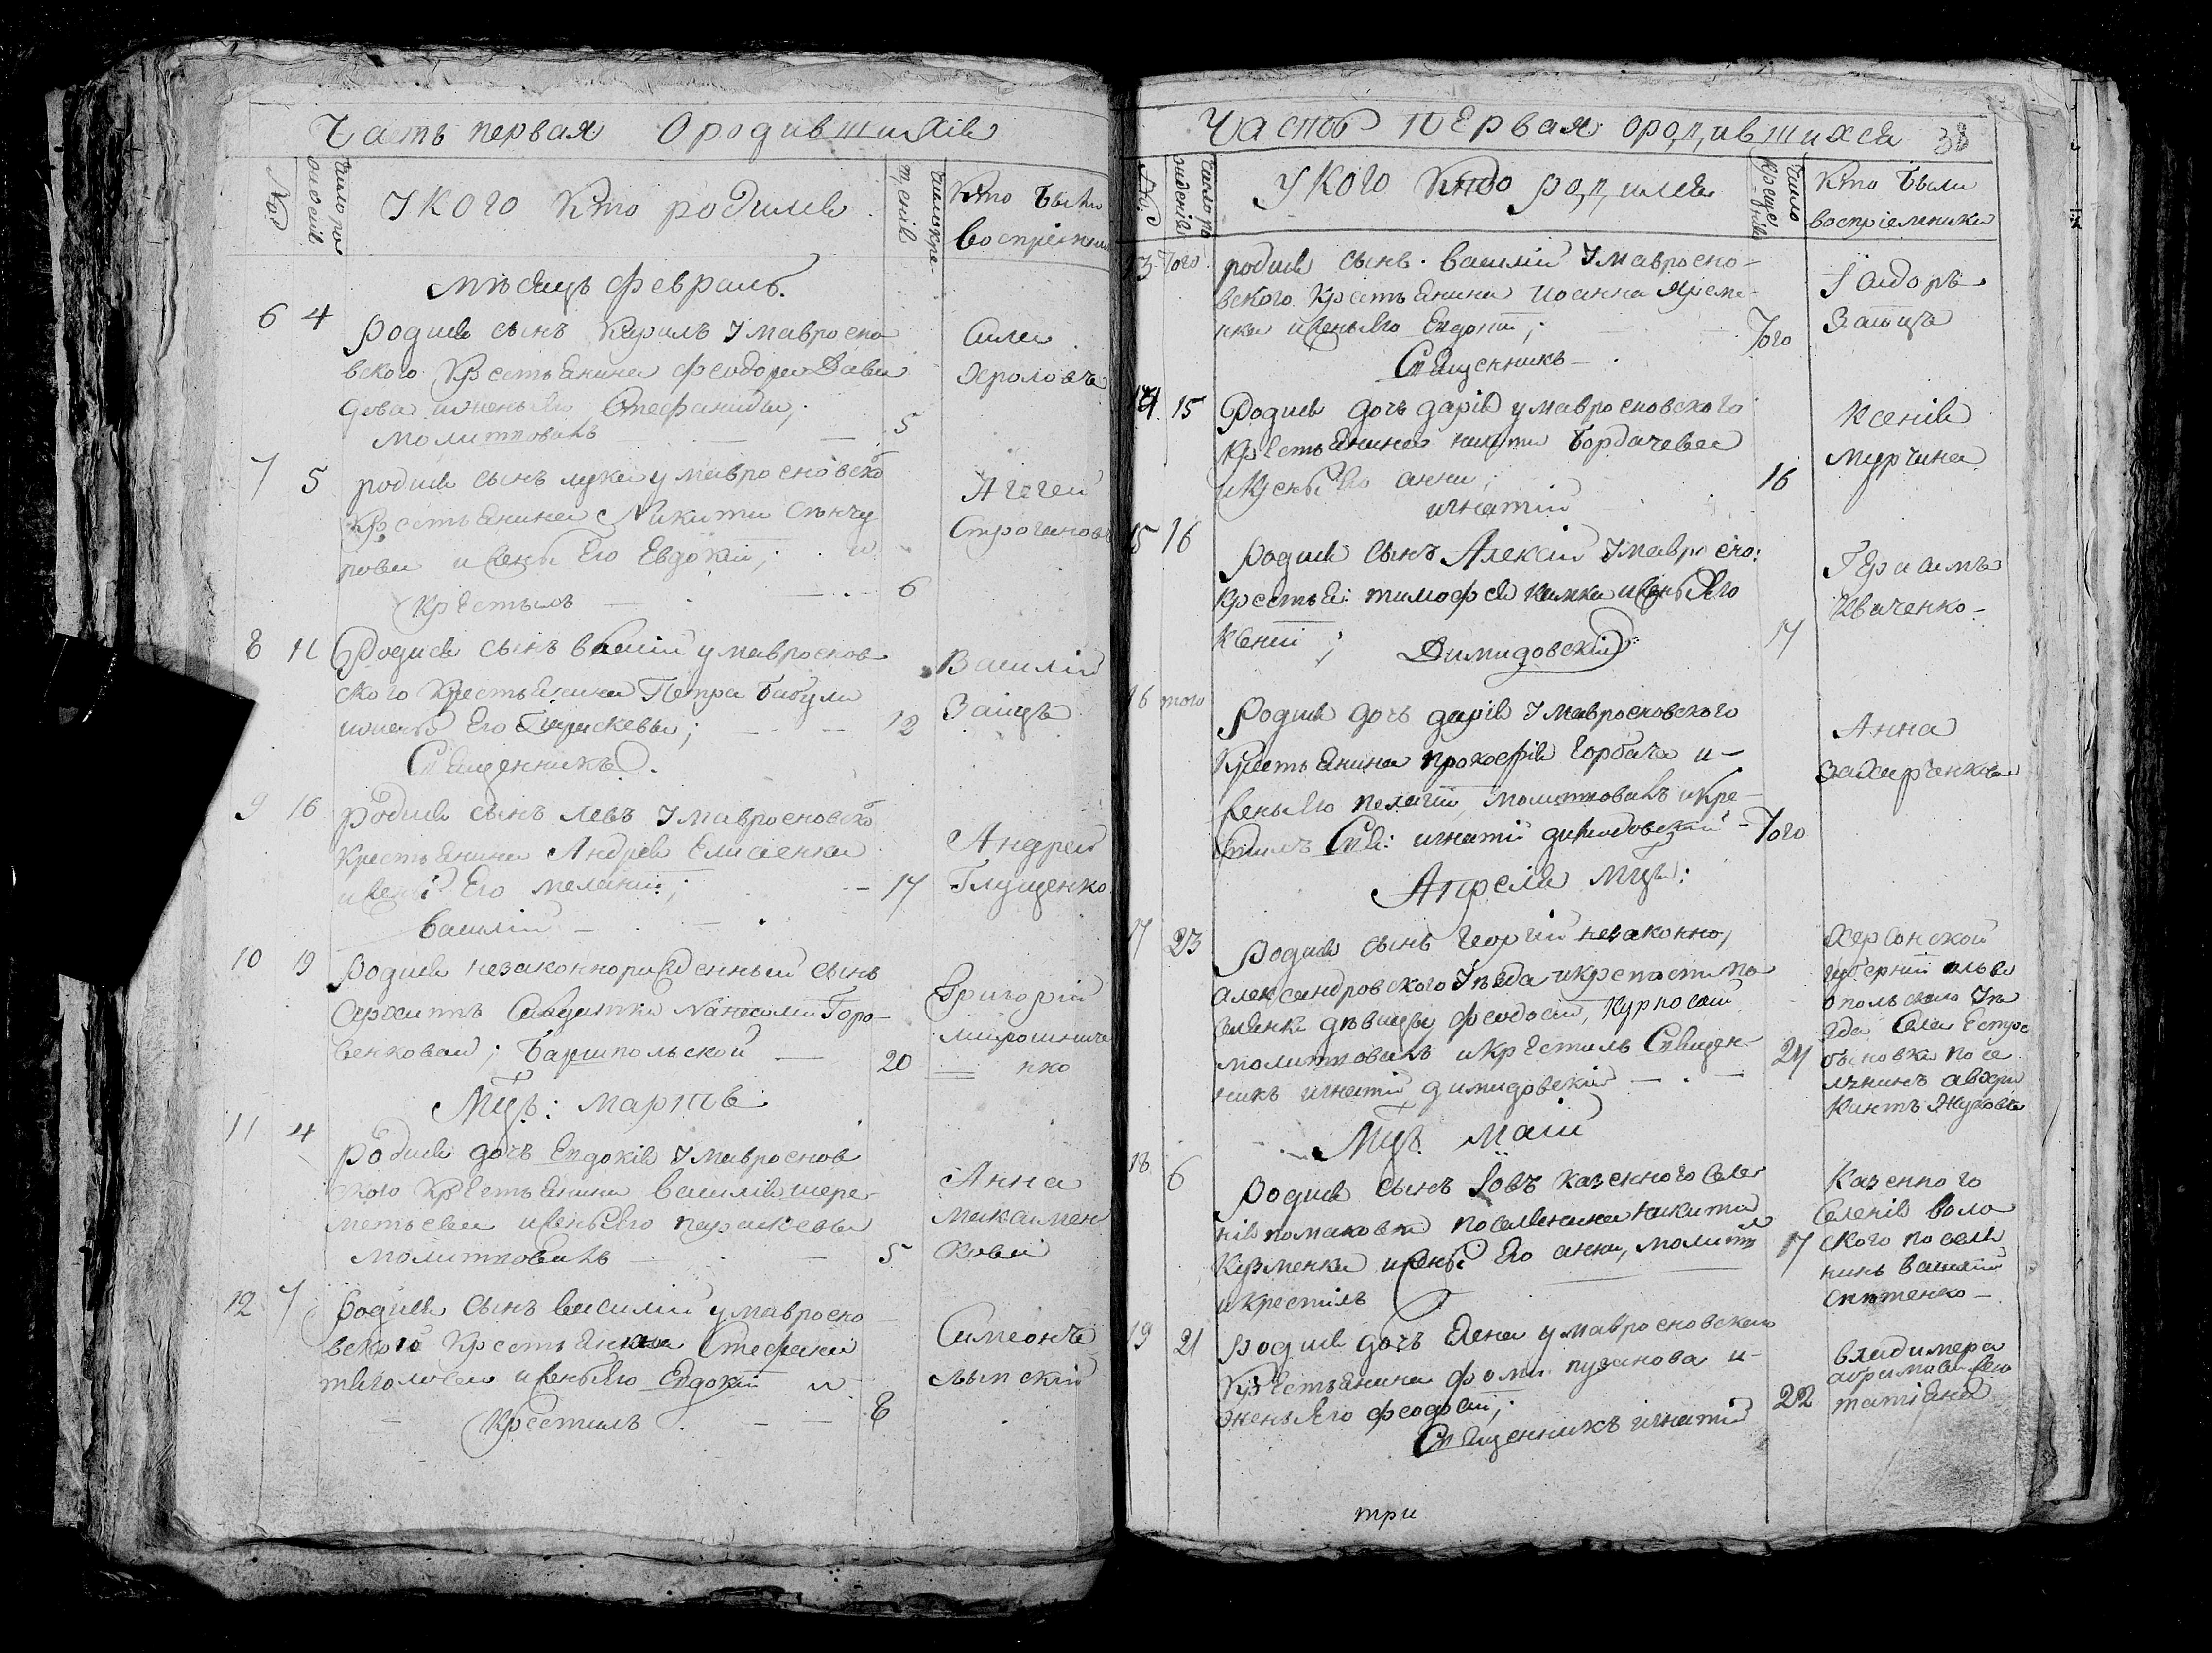 Часть первая О родившихся
№
число рождения
У кого Кто родился
число крещенія
Кто были
воспріемник
Мѣсяцъ февраль.
6 4 Родился сынъ Кирилъ У мавросно
вского Крестьянина Феодора Дави
дова и жены Его Стефаниды;
молитвовалъ 5
Сила
Фроловъ
7 5 родился сынъ лука у мавросновско
Крестьянина Никиты
рова и жены Его Евдокіи; и
Крестилъ 6
Агегей
Строгановъ
8 11 Родился сынъ василій у мавроснов
ского Крестьянина Петра Бабули
и жены Его Параскевы; 12
Священникъ.
Василій
Заицъ
9 16 Родился сынъ левъ У мавросновско
Крестьянина Андрея Елисѣенка
и жены Его мелании; 17
василій
Андрей
Глущенко
10 19 Родился незаконнорожденный сынъ
у Горо-
венковой; Баришпольской 20
Григорій
мирошниче
нко
Мцъ: мартъ
11 4 Родилась дочь Евдокія У мавроснов
ского Крестьянина василія шере
метьева и жены Его параскевы
молитвовалъ 5
Анна
максимен
кова
12 7 Родился сынъ василій у мавросно
вского Крестьянина Стефана
и жены Его Евдокіи и
Крестилъ 8
Симеонъ
лынскій
Часть первая о родившихся 38
№
число рожденія
У кого Кто родился
число крещенія
Кто были
воспріемники
13 Того родился сынъ василій У мавросно-
вского Крестьянина Иоанна Яреме-
нка и жены Его Евдокіи; Того
Священникъ
Ісидоръ
Заица
14 15 Родилась дочь дарія у мавросновского
Крестьянина никиты Бордачева
и жены Его анны; 16
игнатій
Ксенія
мурчина
15 16 Родился сынъ Алексій У мавросно:
Крестья: тимофея камка и жены Его
Ксении; 17
Димидовскій
Герасимъ
Иваченко
16 того Родилась дочь дарія У мавросновского
Крестьянина прокофія Горбача и
жены Его пелагіи, молитвовалъ и кре-
стилъ Свя: игнатій димидовский Того
Анна
Захарченкова
Апреля мцъ:
17 23 Родился сынъ георгій незаконно,
александровского Уѣзда и крепости по
селянки дѣвицы феодосіи, Курносой
молитвовалъ и Крестилъ Священ-
никъ игнатій димидовскій 24
Херсонской
губерніи ольви
опольского Уѣ
зда Села Ястре
биновки посе
лянинъ
Жуковъ
Мцъ. маій
18 6 Родился сынъ Іовъ казенного селе
нія помаковки поселянина никиты
Кузменка и жены Его анны, молитв
и крестилъ 17
Казенного
Селенія воло
ского поселя
нинъ василій
Снѣтенко
19 21 Родилась дочь Елена у мавросновского
Крестьянина фомы пузанова и
жены Его феодосіи; 22
Священникъ игнатій
владимера
авримова жена
татіяна
три